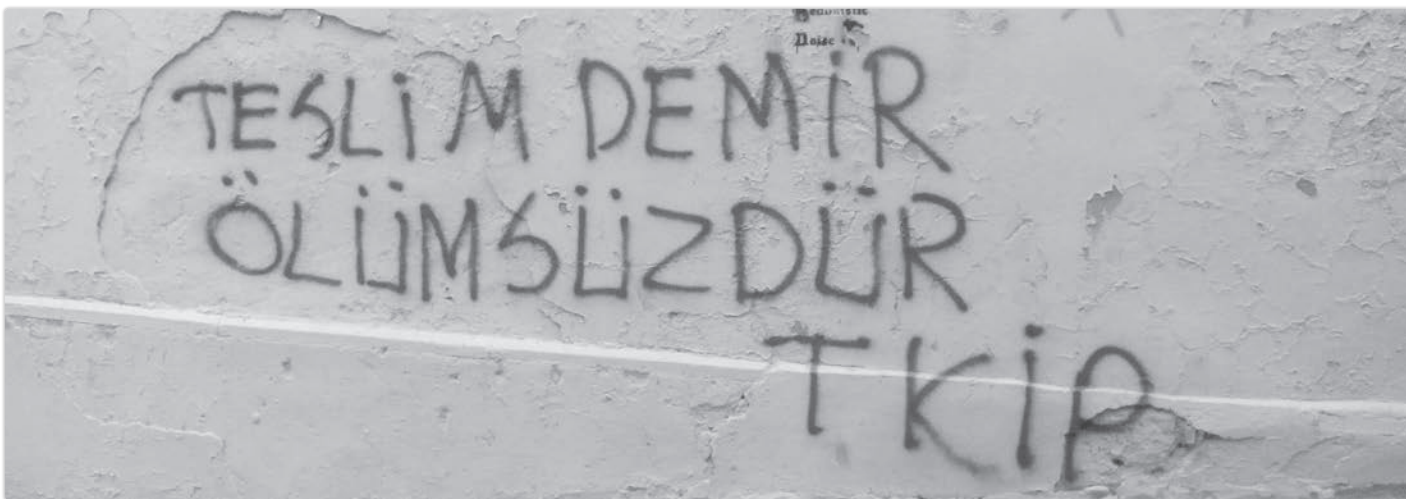 TESLİM DEMİR
ÖLÜMSÜZDÜR
TKİP